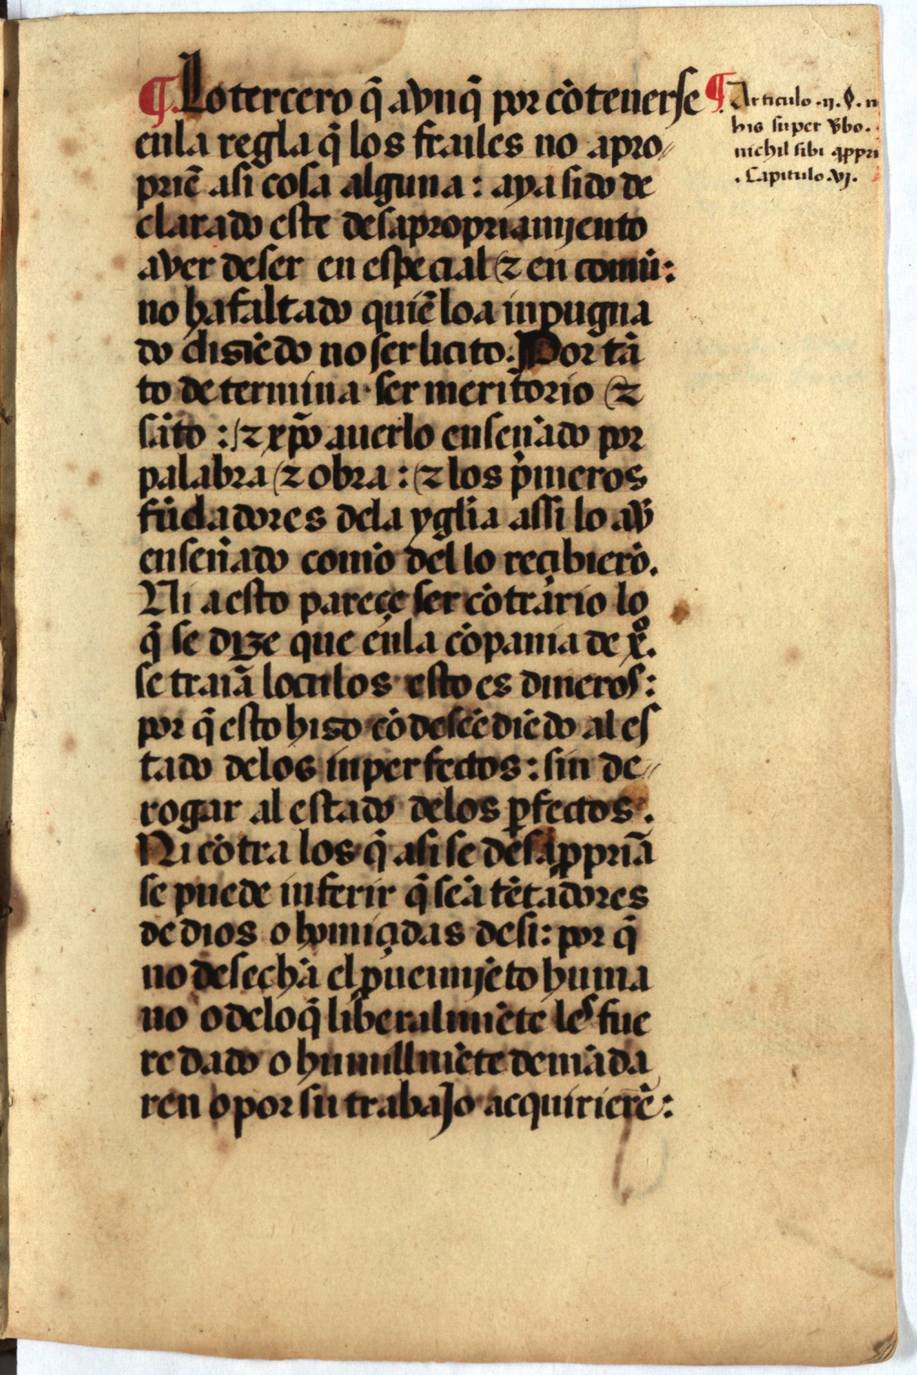 ¶ Lo tercero q̃ avnq̃ por cõtenerse
enla regla q̃ los frailes no apro//
priẽ asi cosa alguna : aya sido de
clarado este desapropriamjento
aver deser en especial ⁊ en comũ:
no ha faltado quiẽ loa inpugna
do disiẽdo no ser licito. Por tã
to determina ser meritorio ⁊
sãto :/ ⁊ xp̃o auerlo enseñado por
palabra ⁊ obra : ⁊ los p̃meros
fũdadores dela ygl̃ia assi lo av̄
enseñado como del lo reçibierõ.
Ni a esto pareçe ser cõtrario lo
q̃ se dize que ẽnla cõpania de xº.
se traiã loculos esto es dineros:
por q̃ esto hiso cõdesçẽdiẽdo al es
tado delos inperfectos : sin de//
rogar al estado delos ꝑfectos .
Ni cõtra los q̃ asi se desaꝓpriã
se puede inferir q̃ seã tẽtadores
de dios o homiçidas desi: por q̃
no desechã el ꝓueimjẽto huma
no o delo q̃ liberalmẽte les fue
re dado o humillmẽte demãda
ren o por su trabaJo acquirierẽ:
¶ Articulo .ij. §.
his super v̄bo.
nichil sibi aꝓpri
. Capitulo .vj.